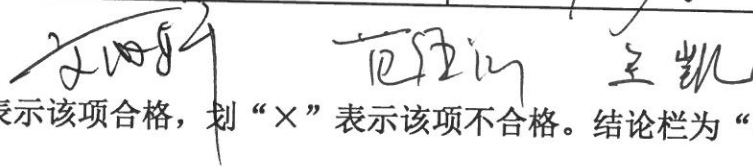 王凯
表示该项合格，划“×”表示该项不合格。结论栏为“